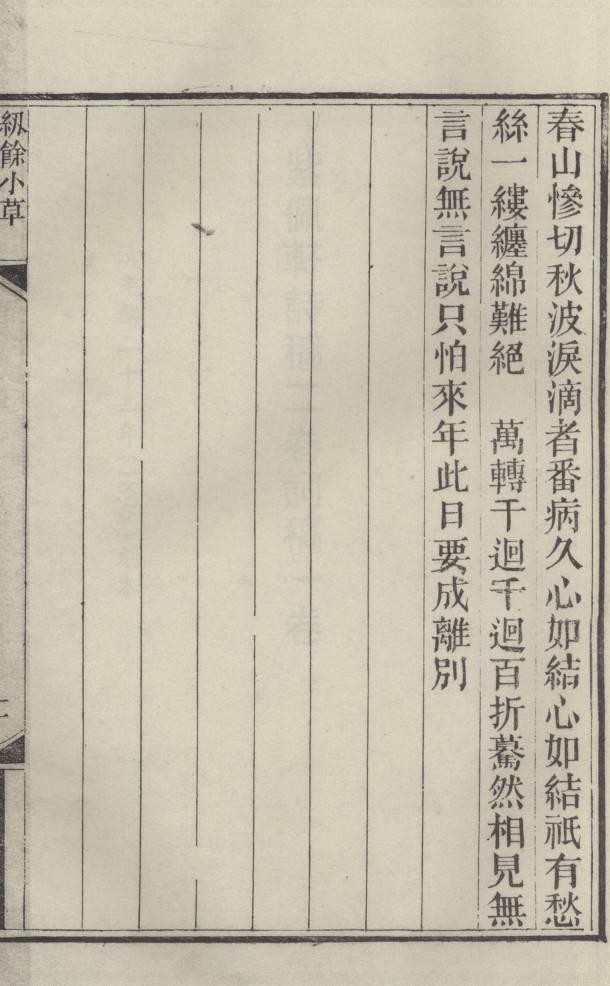 春山慘切秋波淚滴者番病久心如結心如結祇有愁
絲一縷纏綿難絕　萬轉千迴千迴百折驀然相見無
言說無言說只怕來年此日要成離別
紉餘小草
二